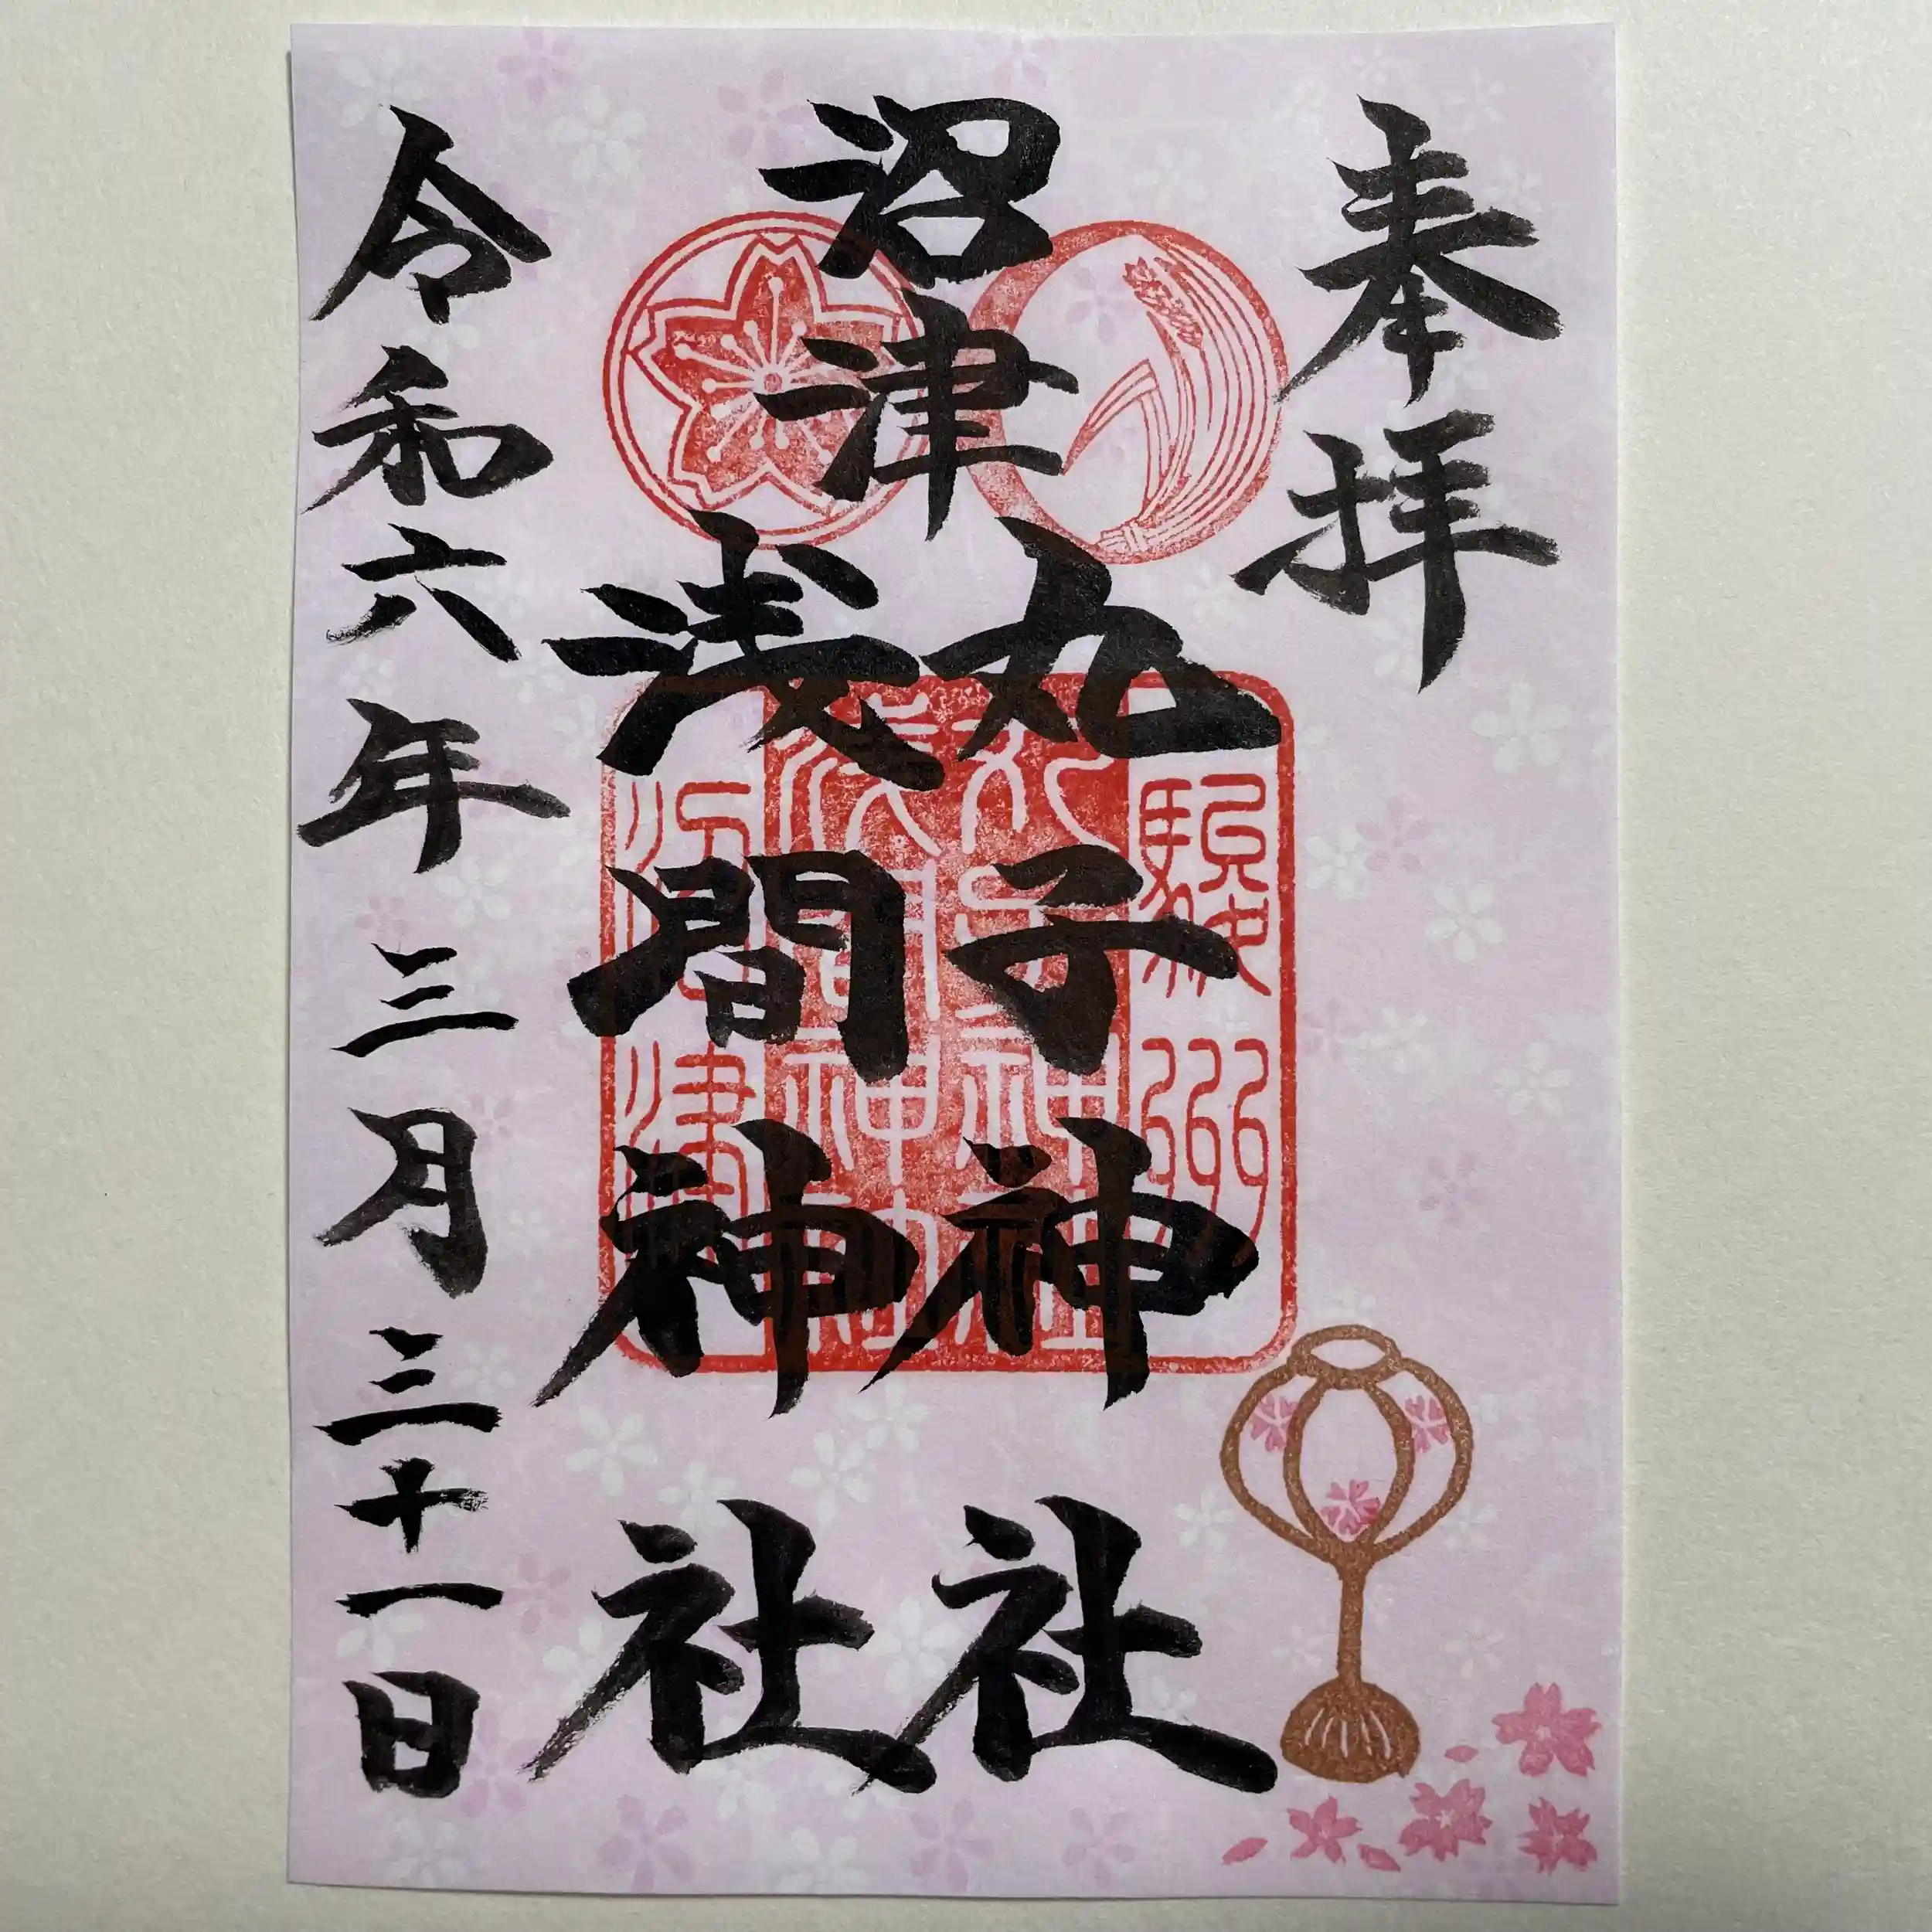 奉拝
沼津
丸子神社
浅間神社
駿州
沼津
丸子神社
浅間神社
令和六年三月三十一日